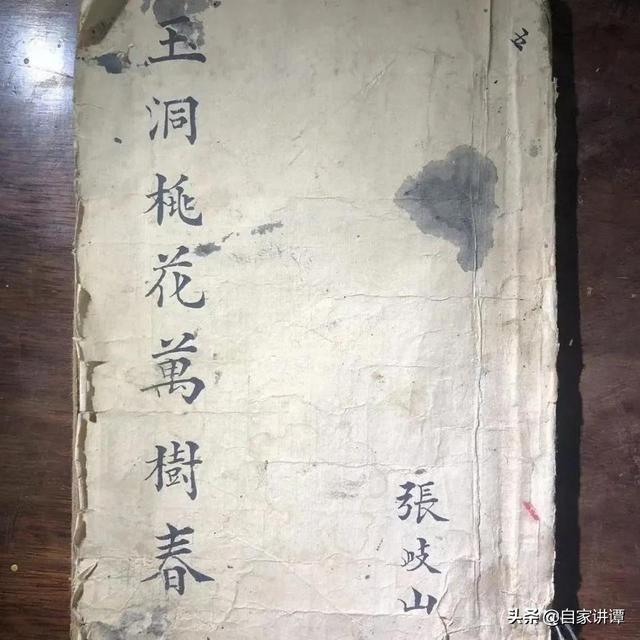 玉洞桃花萬樹春
張岐山
头条 @自家讲谭